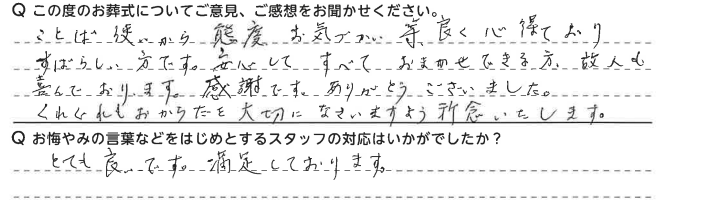 Q この度のお葬式についてご意見、ご感想をお聞かせください。
ことば使いから 態度 お気づかい 等 良く心得ており
すばらしい方です。安心して すべて おまかせできる方、故人も
喜んでおります。感謝です。ありがとうございました。
くれぐれもおからだを大切になさいますよう祈念いたします。
Q お悔やみの言葉などをはじめとするスタッフの対応はいかがでしたか？
とても良いです。満足しております。